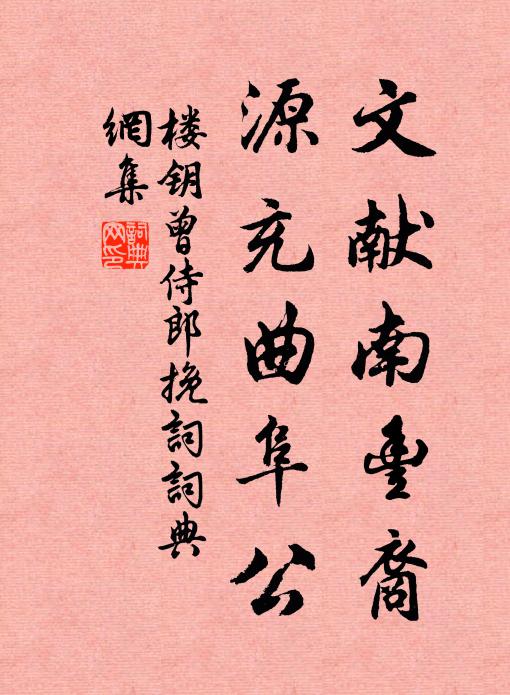 文献南豊裔
源充曲阜公
楼钥曾侍郎挽詞詞典
網集
詞典
网印